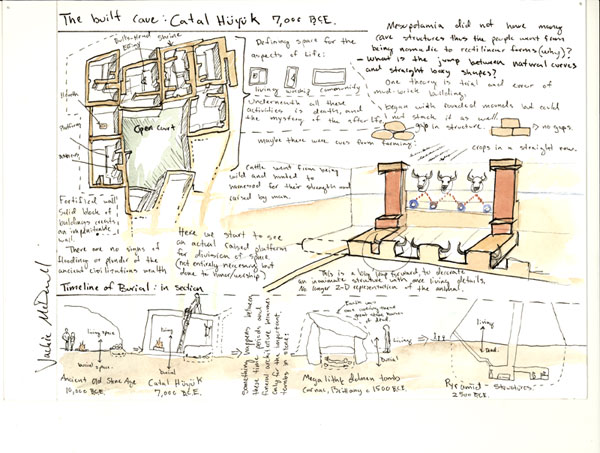 The built cave: Catal Hüyük 7,000 BCE.
Bulls-Head Bldng
Shrine
Hearth
Platform
Open Court
Fortified wall
Solid block of
buildings creates
an impenitrable
wall.
There are no signs of
bleeding or plunder of the
ancient civilizations wealth
Defining space for the
aspects of life:
living worship community
underneath all these
activities is death, and
the mystery of the after life.
Mesopotamia did not have many
cave structures thus the people went from
being nomadic to rectilinear forms (why)?
- What is the jump between natural curves
and straight boxy shapes?
One theory is trial and error of
mud-brick building.
began with rounded mounds but could
not stack it as well
gap in structure.
no gaps.
maybe there were cues from farming:
crops in a straight row.
Cattle went from being
wild and hunted to
harnessed for their strength and
raised by man.
Here we start to see
an actual raised platform
for division of space
(not entirely necessary but
done to honor/worship)
This is a big leap forward to decorate
an inanimate structure with once living details.
No longer 2-D representation of the animal.
Jackie McDowell
Timeline of Burial: in section
living space
burial space
Ancient Old Stone Age
10,000 BCE.
living
burial
Catal Hüyük
7,000 BCE.
Something happens between
these time periods and
funeral architecture becomes
only for the important.
tombs in stone:
burial
Megalithic dolmen tombs
Carnac, Brittany c 1500 BCE.
living
dead.
Pyramid - Structures
2500 BCE.